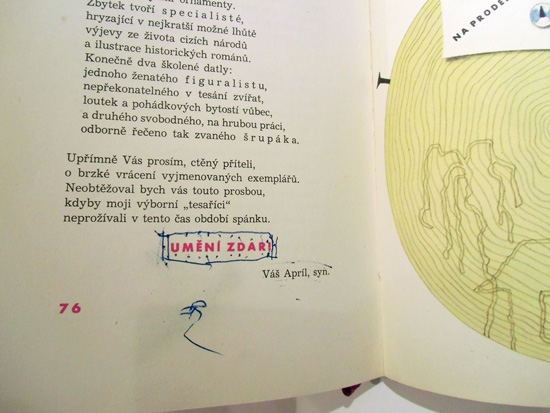 ornamenty.
Zbytek tvoří specialisté,
hryzající v nejkratší možné lhůtě
výjevy ze života cizích národů
a ilustrace historických románů.
Konečně dva školené datly:
jednoho ženatého figuralistu,
nepřekonatelného v tesání zvířat,
loutek a pohádkových bytostí vůbec,
a druhého svobodného, na hrubou práci,
odborně řečeno tak zvaného šrupáka.
Upřímně Vás prosím, ctěný příteli,
o brzké vrácení vyjmenovaných exemplářů.
Neobtěžoval bych vás touto prosbou,
kdyby moji výborní „tesaříci“
neprožívali v tento čas období spánku.
UMĚNÍ ZDAR!
Váš Apríl, syn.
76